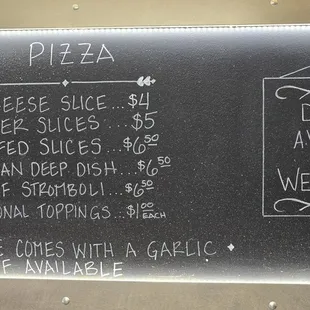 PIZZA
EESE SLICE...$4
ER SLICES...$5
FED SLICES...$6.50
AN DEEP DISH...$6.50
F STROMBOLI...$6.50
ONAL TOPPINGS...$1.00 EACH
E COMES WITH A GARLIC
F AVAILABLE
D
A
WE